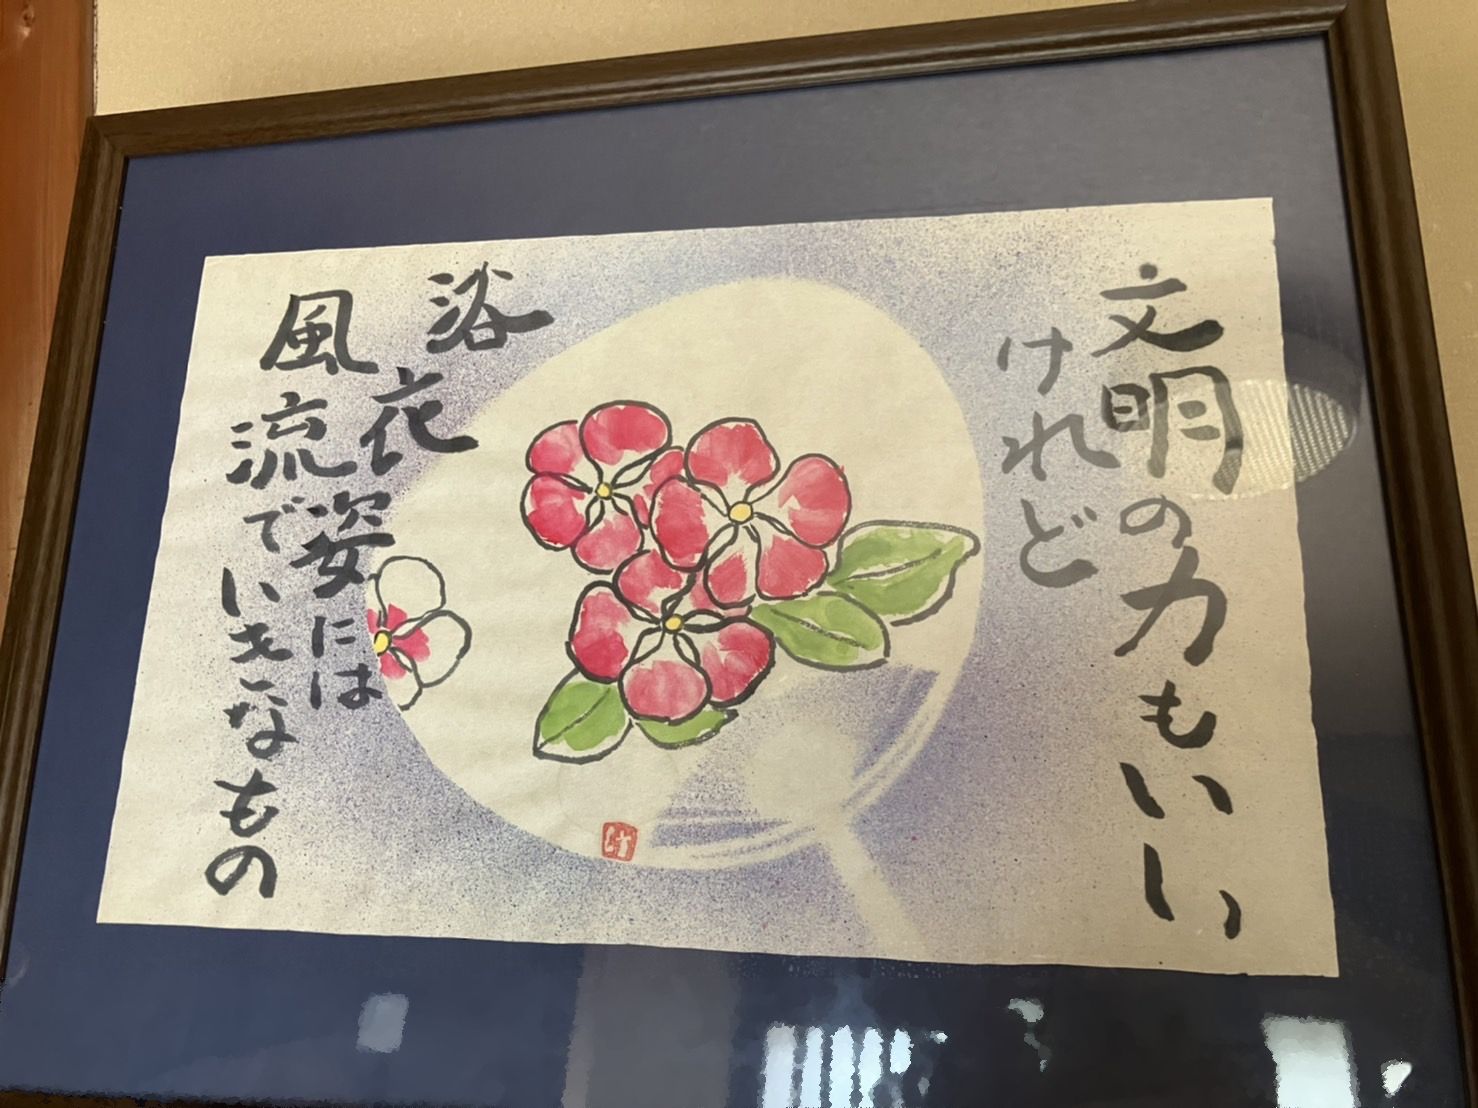 文明の力もいい
けれど
浴
花姿には
風流でいきなもの